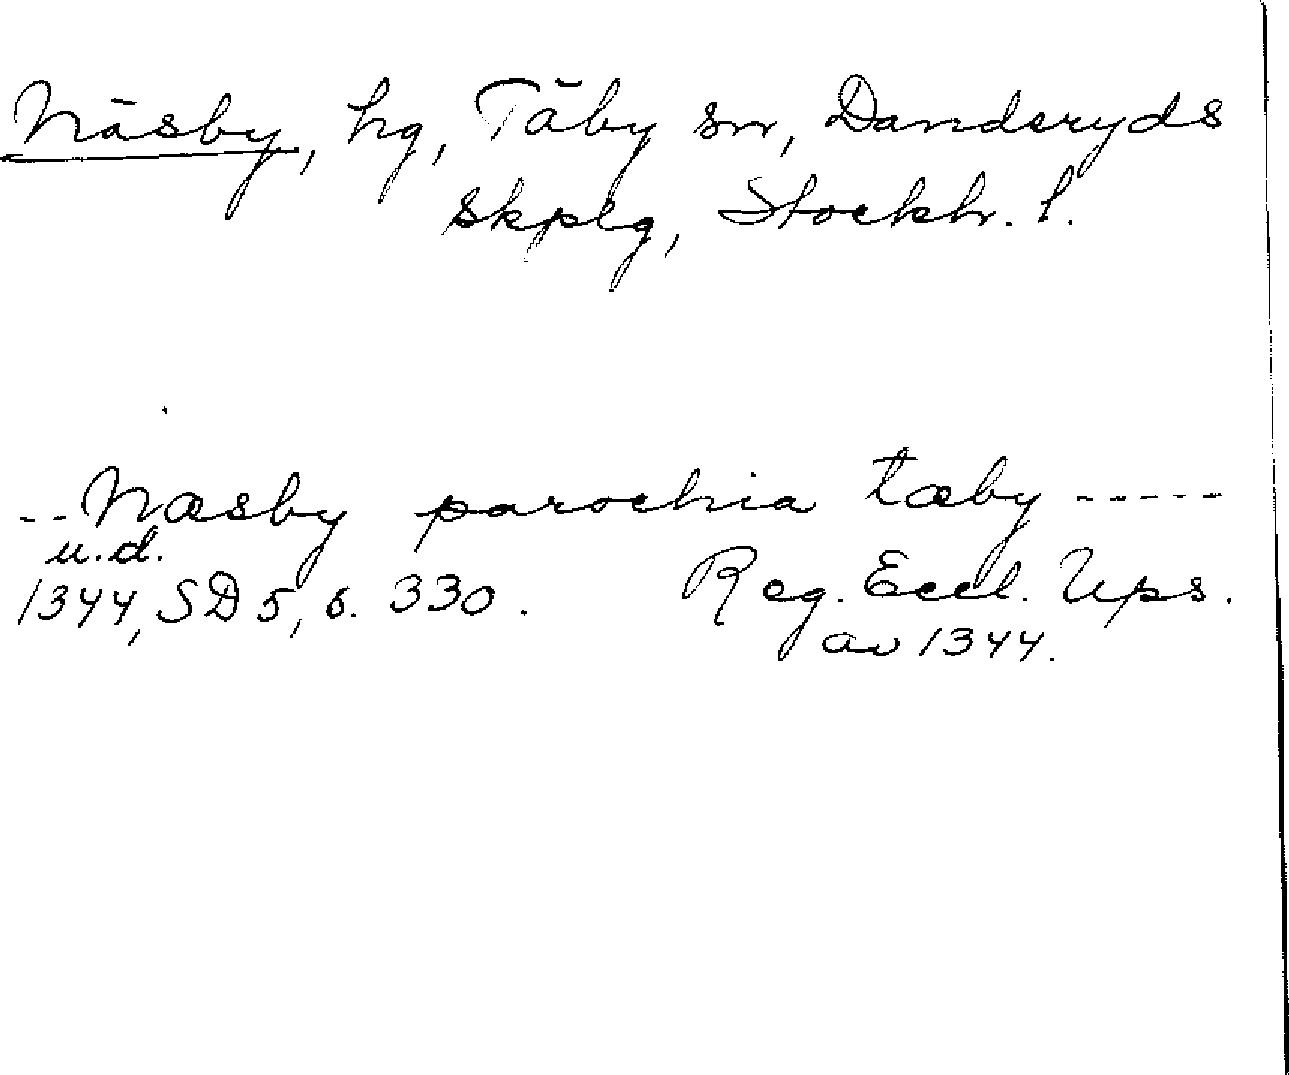 Näsby, hg, Täby sn, Danderyds
skplg, Stockh. l.
-- Næsby parochia tæby -----
u.d.
1344, SD 5, s. 330. Reg. Eccl. Ups.
av 1344.